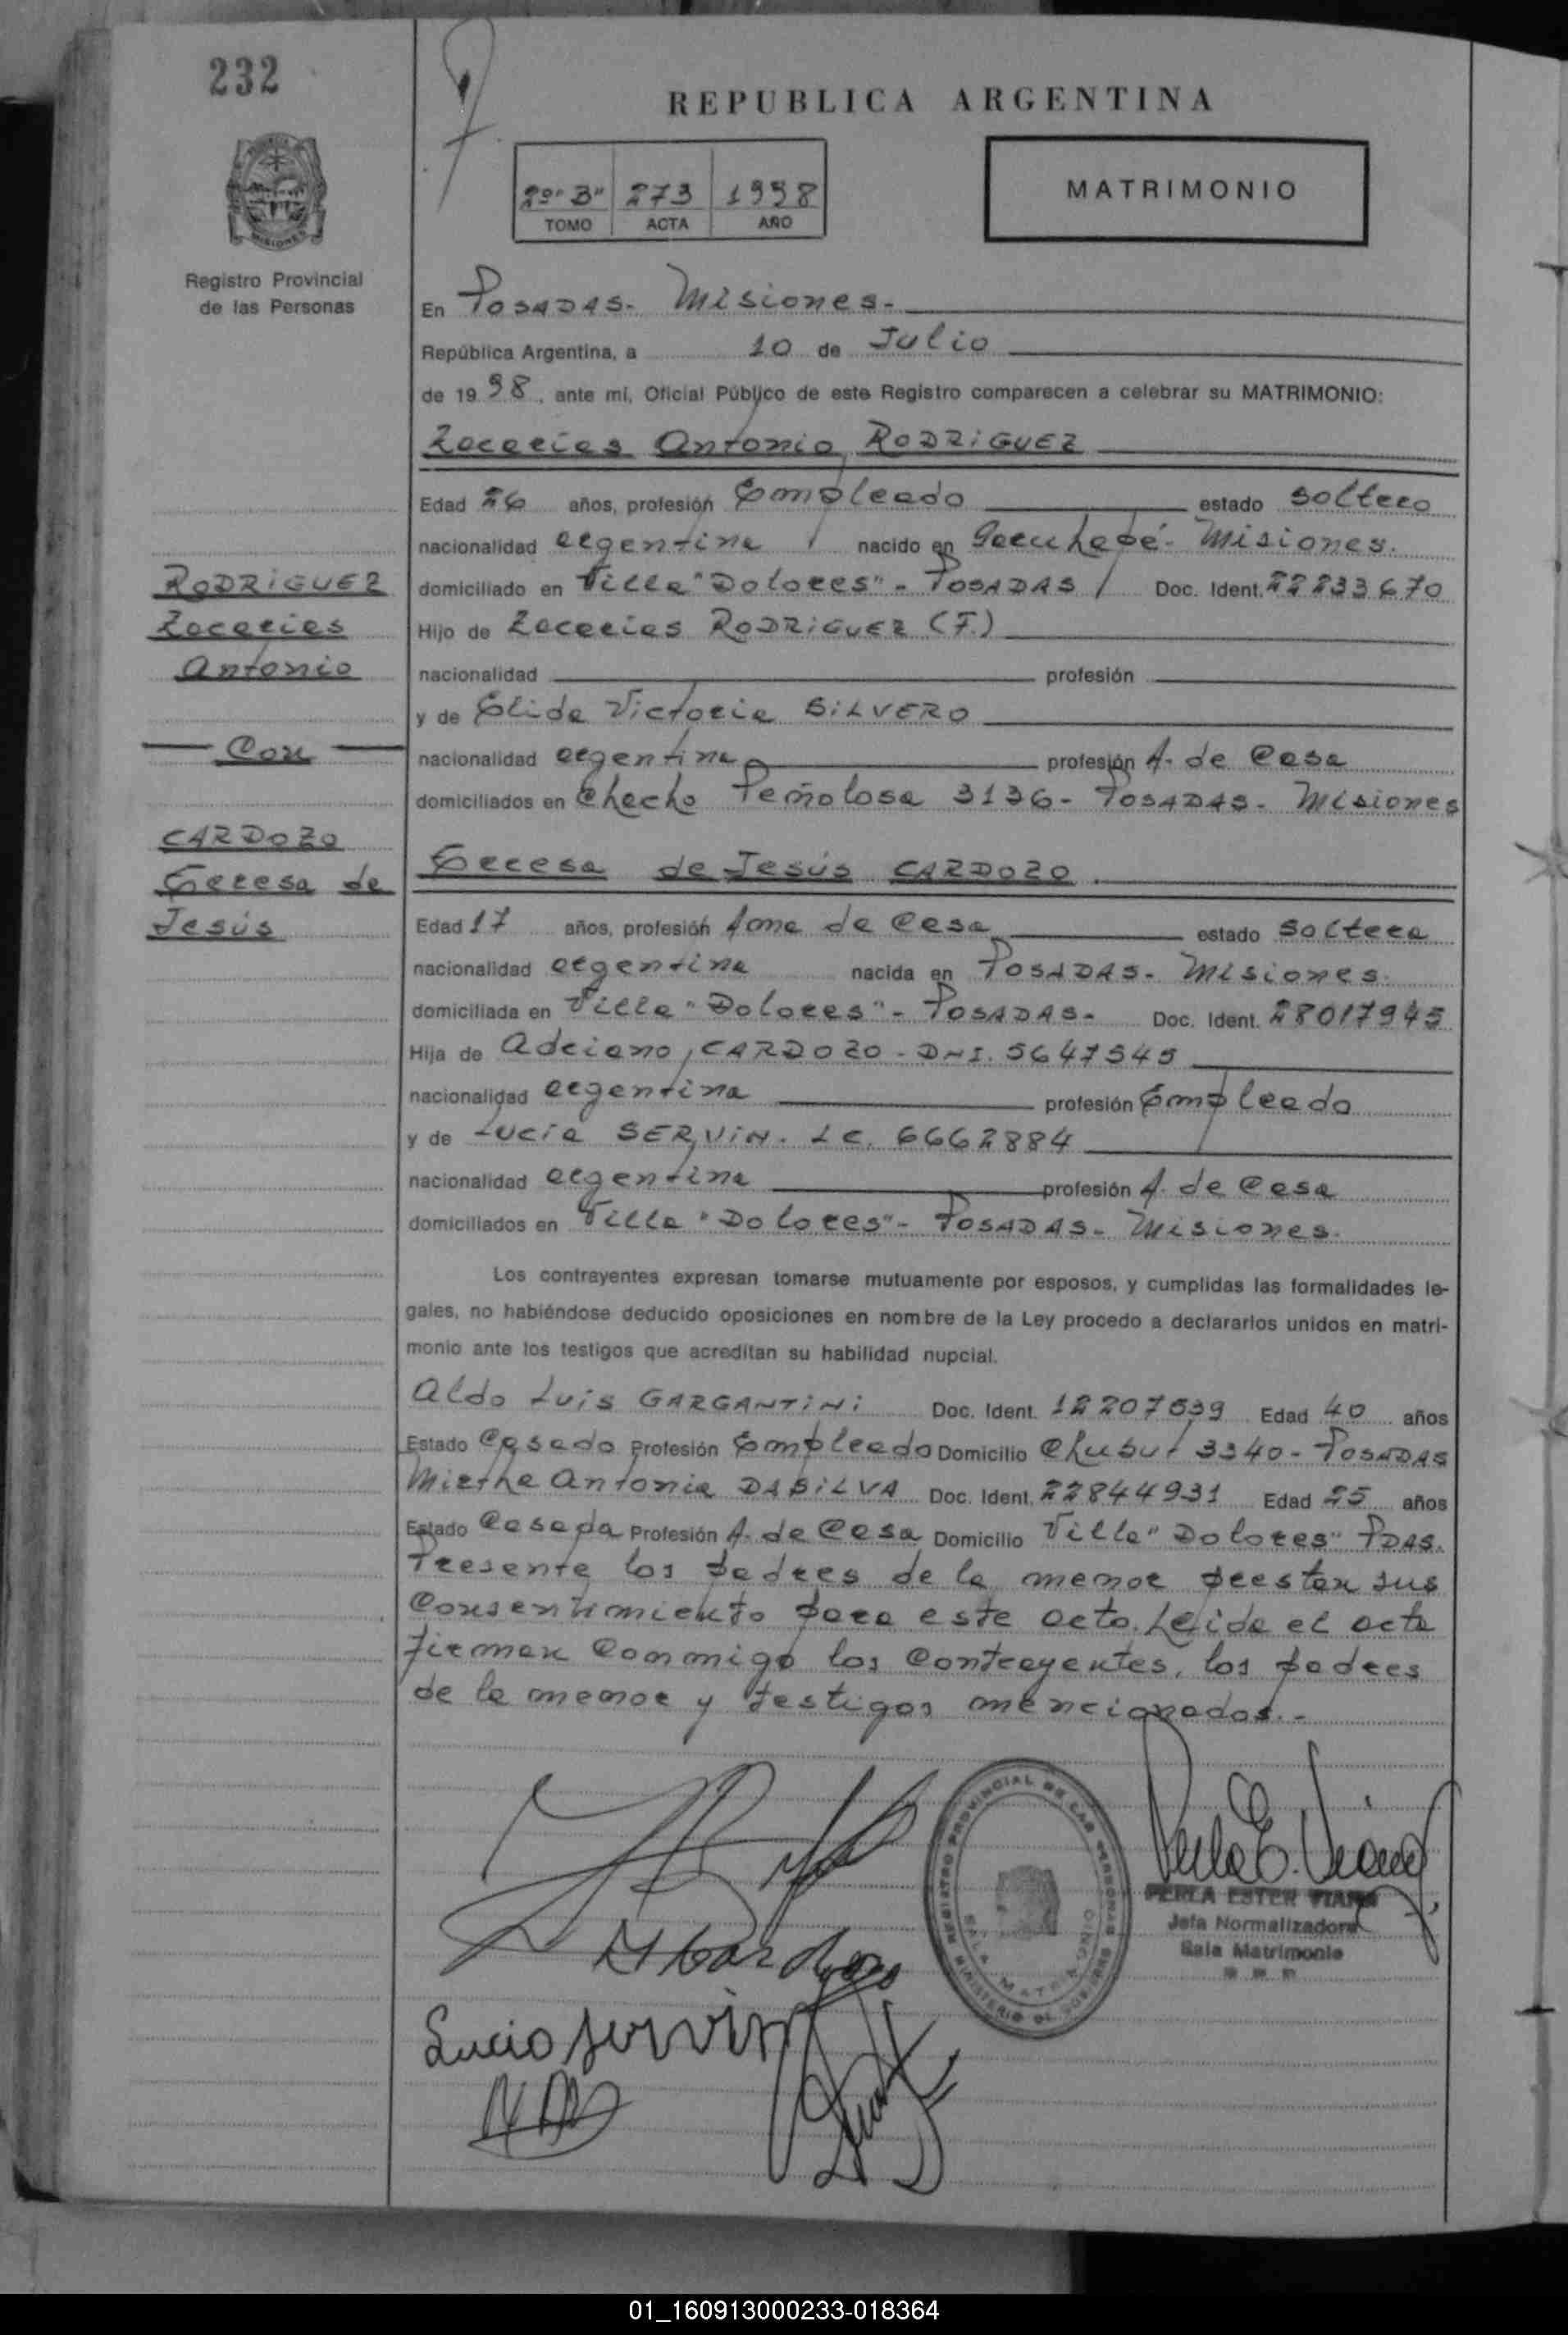 232
REPUBLICA ARGENTINA
2º "B" 273 1998
TOMO ACTA AÑO
MATRIMONIO
MISIONES
Registro Provincial
de las Personas
En POSADAS- Misiones-
República Argentina, a 10 de Julio
de 19 98, ante mi, Oficial Público de este Registro comparecen a celebrar su MATRIMONIO:
Zacarías Antonio RODRIGUEZ
Edad 26 años, profesión Empleado estado soltero
nacionalidad argentina nacido en Garuhapé- Misiones.
RODRIGUEZ
Zacarías
Antonio
Con
CARDOZO
Teresa de
Jesús
domiciliado en Villa "Dolores"- POSADAS Doc. Ident. 22233670
Hijo de Zacarías RODRIGUEZ (F.)
nacionalidad profesión
y de Elida Victoria SILVERO
nacionalidad argentina profesión A. de Casa
domiciliados en Chacho Peñolosa 3136- POSADAS- Misiones
Teresa de Jesús CARDOZO
Edad 17 años, profesión Ama de Casa estado soltera
nacionalidad argentina nacida en POSADAS- Misiones.
domiciliada en Villa "Dolores"- POSADAS- Doc. Ident. 28017945
Hija de Adriano, CARDOZO- DNI. 5647545
nacionalidad argentina profesión Empleado
y de Lucía SERVIN. LC. 6662884
nacionalidad argentina profesión A. de Casa
domiciliados en Villa "Dolores"- POSADAS- Misiones.
Los contrayentes expresan tomarse mutuamente por esposos, y cumplidas las formalidades le-
gales, no habiéndose deducido oposiciones en nombre de la Ley procedo a declararlos unidos en matri-
monio ante los testigos que acreditan su habilidad nupcial.
Aldo Luis GARGANTINI Doc. Ident. 12207539 Edad 40 años
Estado Casado Profesión Empleado Domicilio Chubut 3340- POSADAS
Mirtha Antonia DASILVA Doc. Ident. 22844931 Edad 25 años
Estado Casada Profesión A. de Casa Domicilio Villa "Dolores" PDAS.
Presente los padres de la menor prestan sus
Consentimiento para este acto. Leída el acta
firman Conmigo los Contrayentes, los padres
de la menor y testigos mencionados.-
REGISTRO PROVINCIAL DE LAS PERSONAS
SALA MATRIMONIO
MINISTERIO DE GOBIERNO
Perla E. Viana
PERLA ESTER VIANA
Jefa Normalizadora
Sala Matrimonio
Lucia servin
01_160913000233-018364